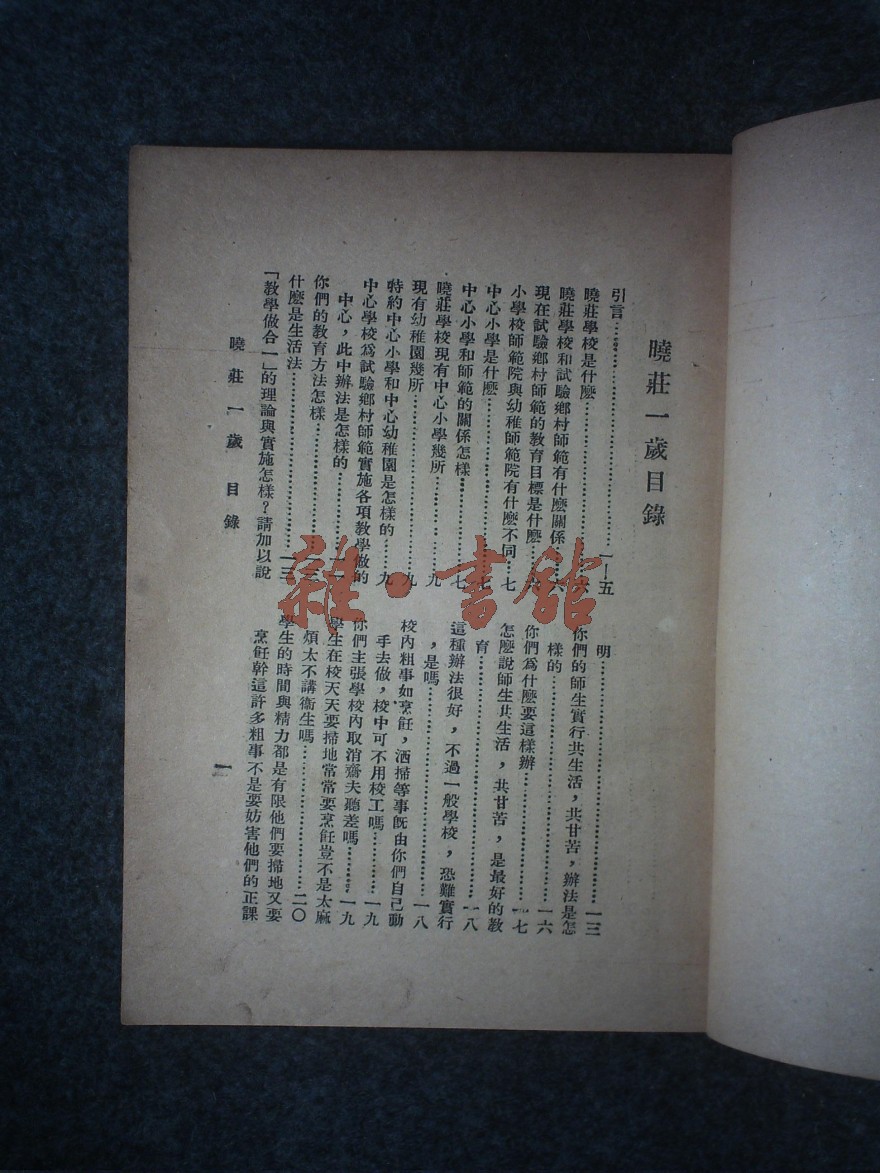 曉莊一歲目錄
引言……………………………一—五
曉莊學校是什麽…………………六
曉莊學校和試驗鄉村師範有什麽關係……六
現在試驗鄉村師範的教育目標是什麽……六
小學校師範院與幼稚師範院有什麽不同…七
中心小學是什麽…………………七
中心小學和師範的關係怎樣……………七
曉莊學校現有中心小學幾所……………九
現有幼稚園幾所…………………九
特約中心小學和中心幼稚園是怎樣的……九
中心學校爲試驗鄉村師範實施各項教學做的
中心，此中辦法是怎樣的……………一一
你們的教育方法怎樣…………………一三
什麽是生活法…………………………一三
「教學做合一」的理論與實施怎樣？請加以說
明……………………………一三
你們的師生實行共生活，共甘苦，辦法是怎
樣的……………………………一六
你們爲什麽要這樣辦…………………一七
怎麽說師生共生活，共甘苦，是最好的教
育……………………………一八
這種辦法很好，不過一般學校，恐難實行
，是嗎……………………………一八
校內粗事如烹飪，洒掃等事旣由你們自己動
手去做，校中可不用校工嗎……………一九
你們主張學校內取消齋夫聽差嗎…………一九
學生在校天天要掃地常常要烹飪豈不是太麻
煩太不講衛生嗎…………………二〇
學生的時間與精力都是有限他們要掃地又要
烹飪幹這許多粗事不是要妨害他們的正課
曉莊一歲 目錄
一
雜·書館